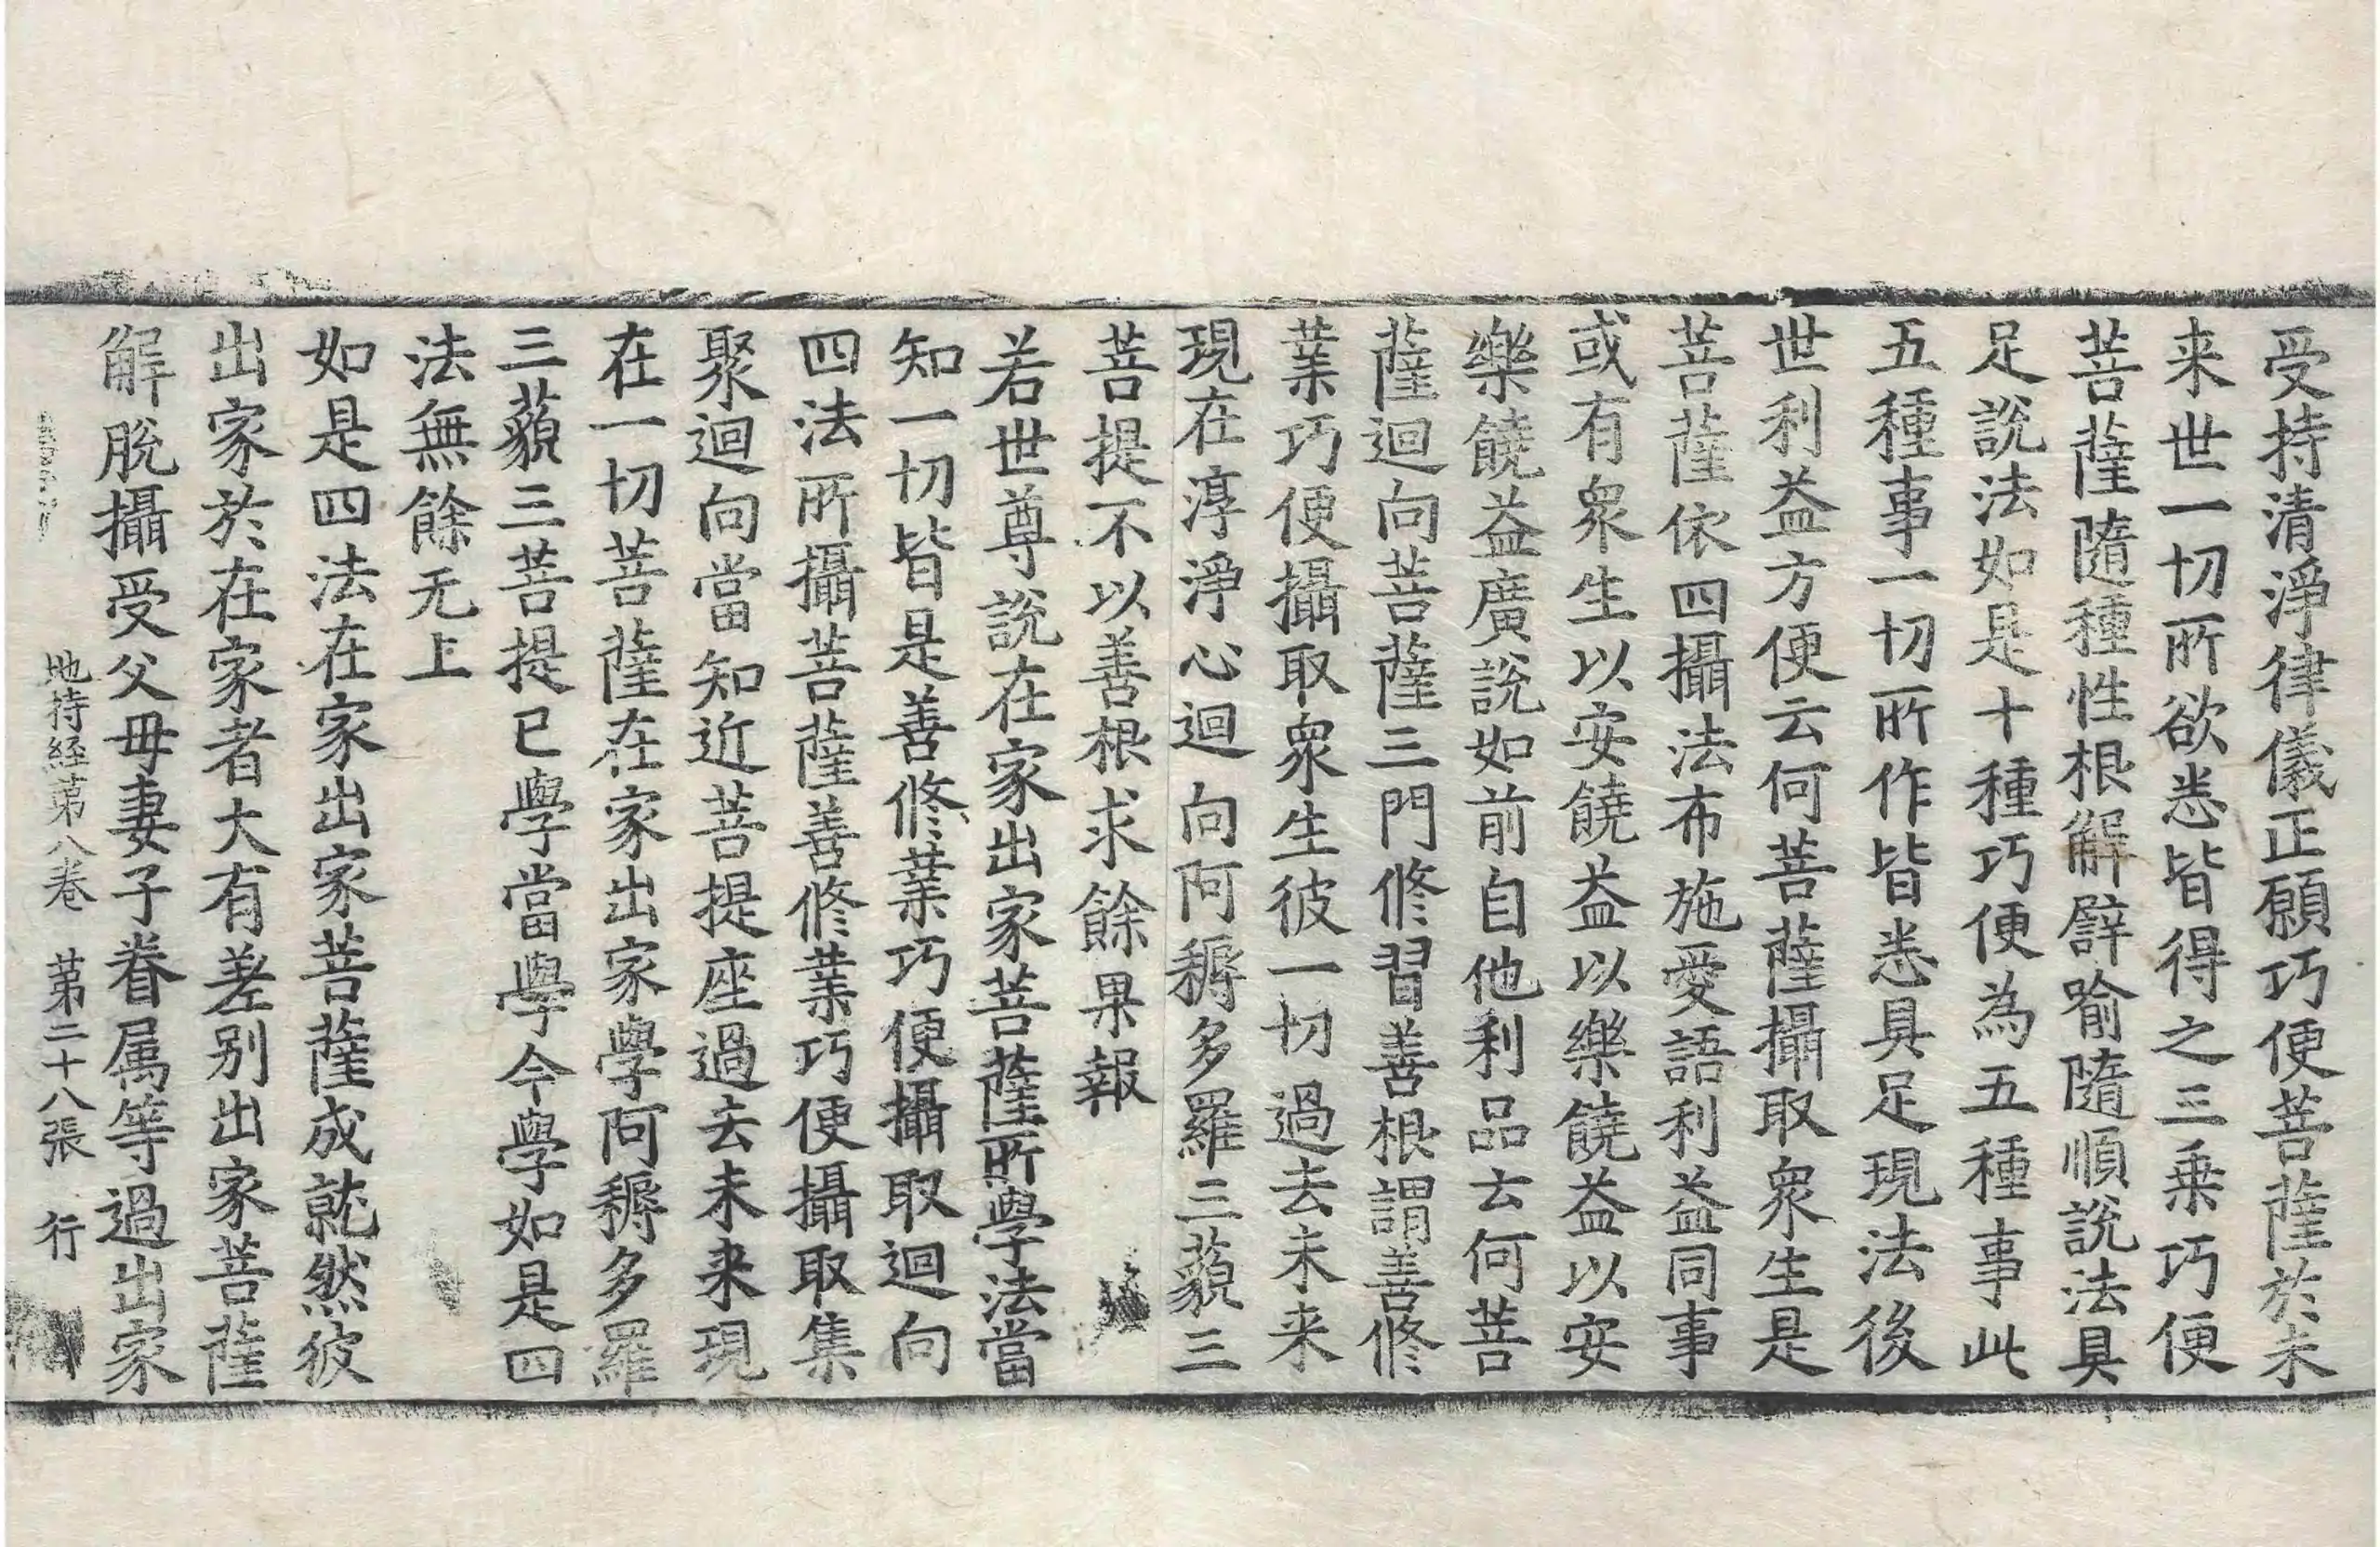 受持清淨律儀正願巧便菩薩於未
来世一切所欲悉皆得之三乗巧便
菩薩隨種性根解譬喻隨順說法具
足說法如是十種巧便為五種事此
五種事一切所作皆悉具足現法後
世利益方便云何菩薩攝取眾生是
菩薩依四攝法布施愛語利益同事
或有眾生以安饒益以樂饒益以安
樂饒益廣說如前自他利品云何菩
薩迴向菩薩三門修習善根謂善修
業巧便攝取眾生彼一切過去未来
現在淳淨心迴向阿耨多羅三藐三
菩提不以善根求餘果報
若世尊說在家出家菩薩所學法當
知一切皆是善修業巧便攝取迴向
四法所攝菩薩善修業巧便攝取集
聚迴向當知近菩提座過去未来現
在一切菩薩在家出家學阿耨多羅
三藐三菩提已學當學今學如是四
法無餘无上
如是四法在家出家菩薩成就然彼
出家於在家者大有差别出家菩薩
解脫攝受父母妻子眷属等過出家
地持經第八卷　第二十八張　行